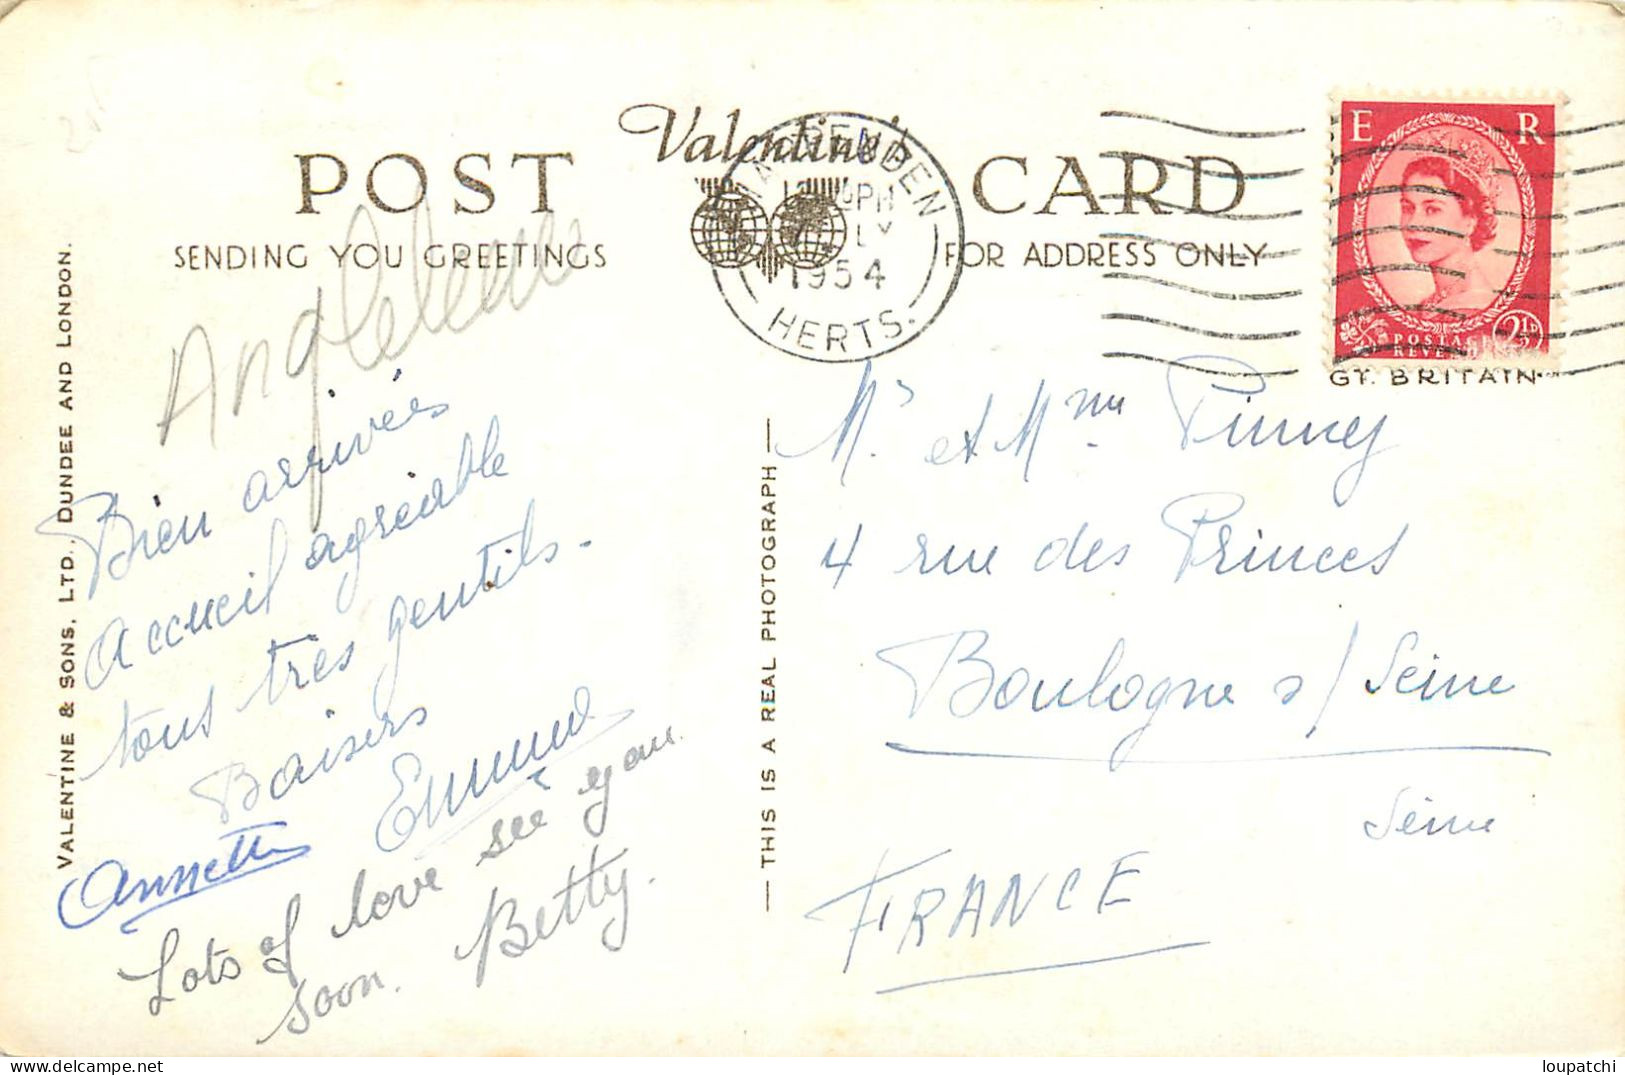 POST
Valentine's
CARD
SENDING YOU GREETINGS
FOR ADDRESS ONLY
HARPENDEN
PM
LY
1954
HERTS.
E R
POSTAGE
REVENUE
2½D
GT. BRITAIN
VALENTINE & SONS, LTD., DUNDEE AND LONDON.
— THIS IS A REAL PHOTOGRAPH —
Angleterre
Bien arrivées
accueil agréable
tous très gentils.
Baisers
Annette
Lots of love see you
soon. Betty.
Mr et Mme
4 rue des Princes
Boulogne s/ Seine
Seine
FRANCE
loupatchi